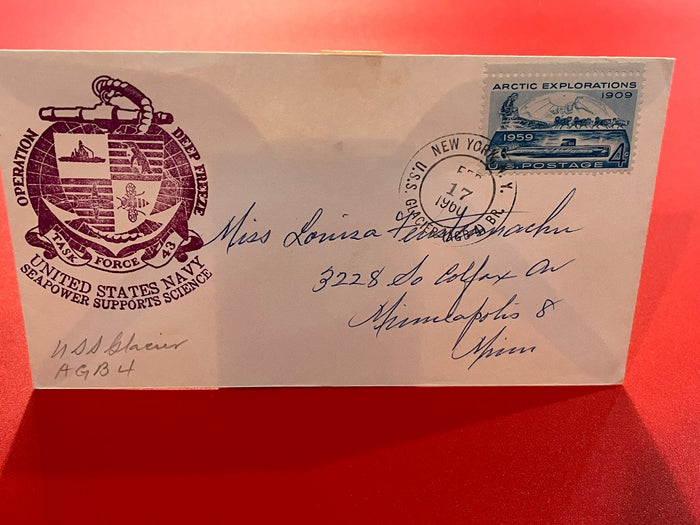 OPERATION DEEP FREEZE
TASK FORCE 43
UNITED STATES NAVY
SEAPOWER SUPPORTS SCIENCE
USS Glacier
AGB 4
ARCTIC EXPLORATIONS
1909
1959
4¢
U.S. POSTAGE
NEW YORK, N.Y.
FEB
17
1960
U.S.S. GLACIER (AGB-4) BR.
Miss Louisa
3228 So Colfax Av
Minneapolis 8
Minn